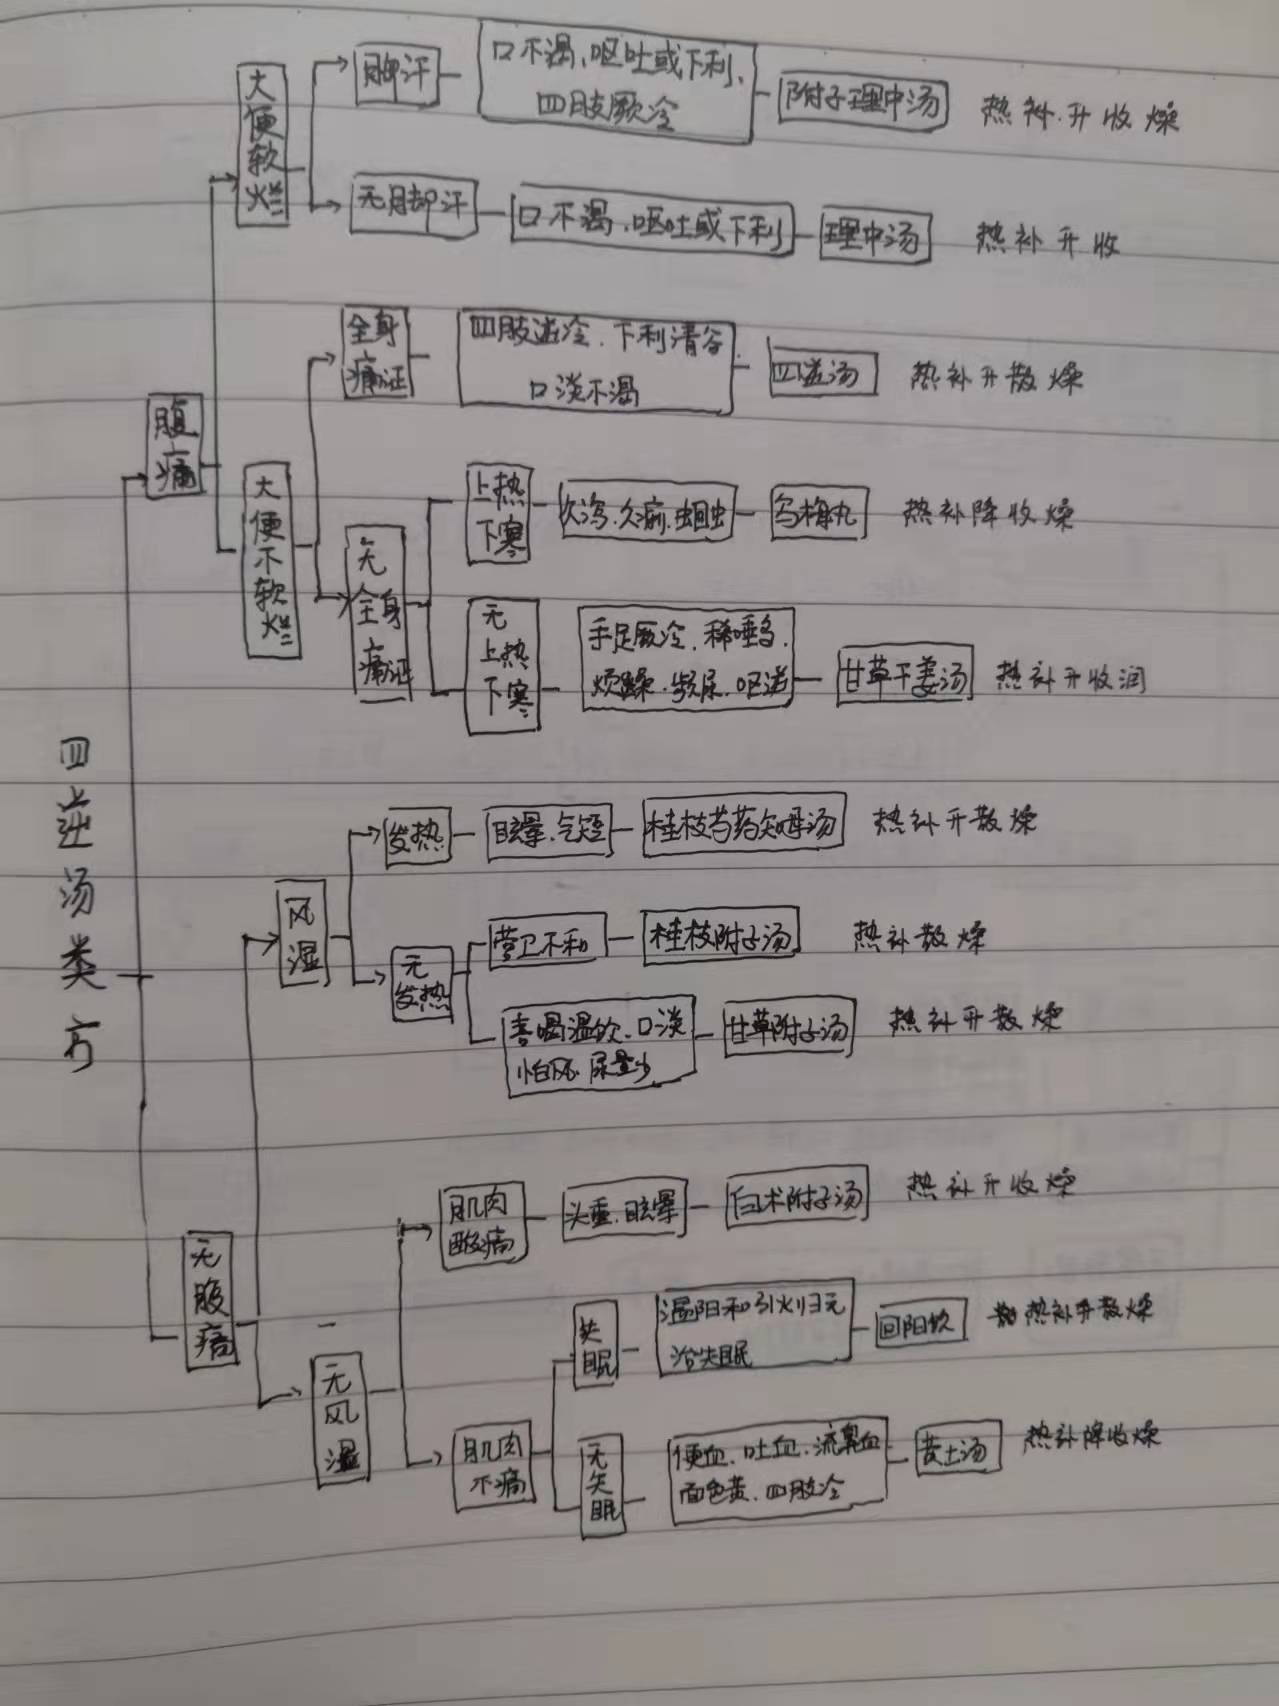 四逆汤类方
腹痛
大便软烂
脚汗
口不渴、呕吐或下利、
四肢厥冷
附子理中汤
热补升收燥
无脚汗
口不渴、呕吐或下利
理中汤
热补升收
大便不软烂
全身
痛证
四肢逆冷、下利清谷
口淡不渴
四逆汤
热补升散燥
无全身痛证
上热
下寒
久泻、久痢、蛔虫
乌梅丸
热补降收燥
无
上热
下寒
手足厥冷、稀唾多、
烦躁、频尿、呕逆
甘草干姜汤
热补升收润
无腹痛
风湿
发热
眩晕、气短
桂枝芍药知母汤
热补升散燥
无
发热
营卫不和
桂枝附子汤
热补散燥
喜喝温饮、口淡
怕风、尿量少
甘草附子汤
热补升散燥
无风湿
肌肉
酸痛
头重、眩晕
白术附子汤
热补升收燥
肌肉
不痛
失眠
温阳和引火归元
治失眠
回阳饮
热补升散燥
无失眠
便血、吐血、流鼻血
面色黄、四肢冷
黄土汤
热补降收燥